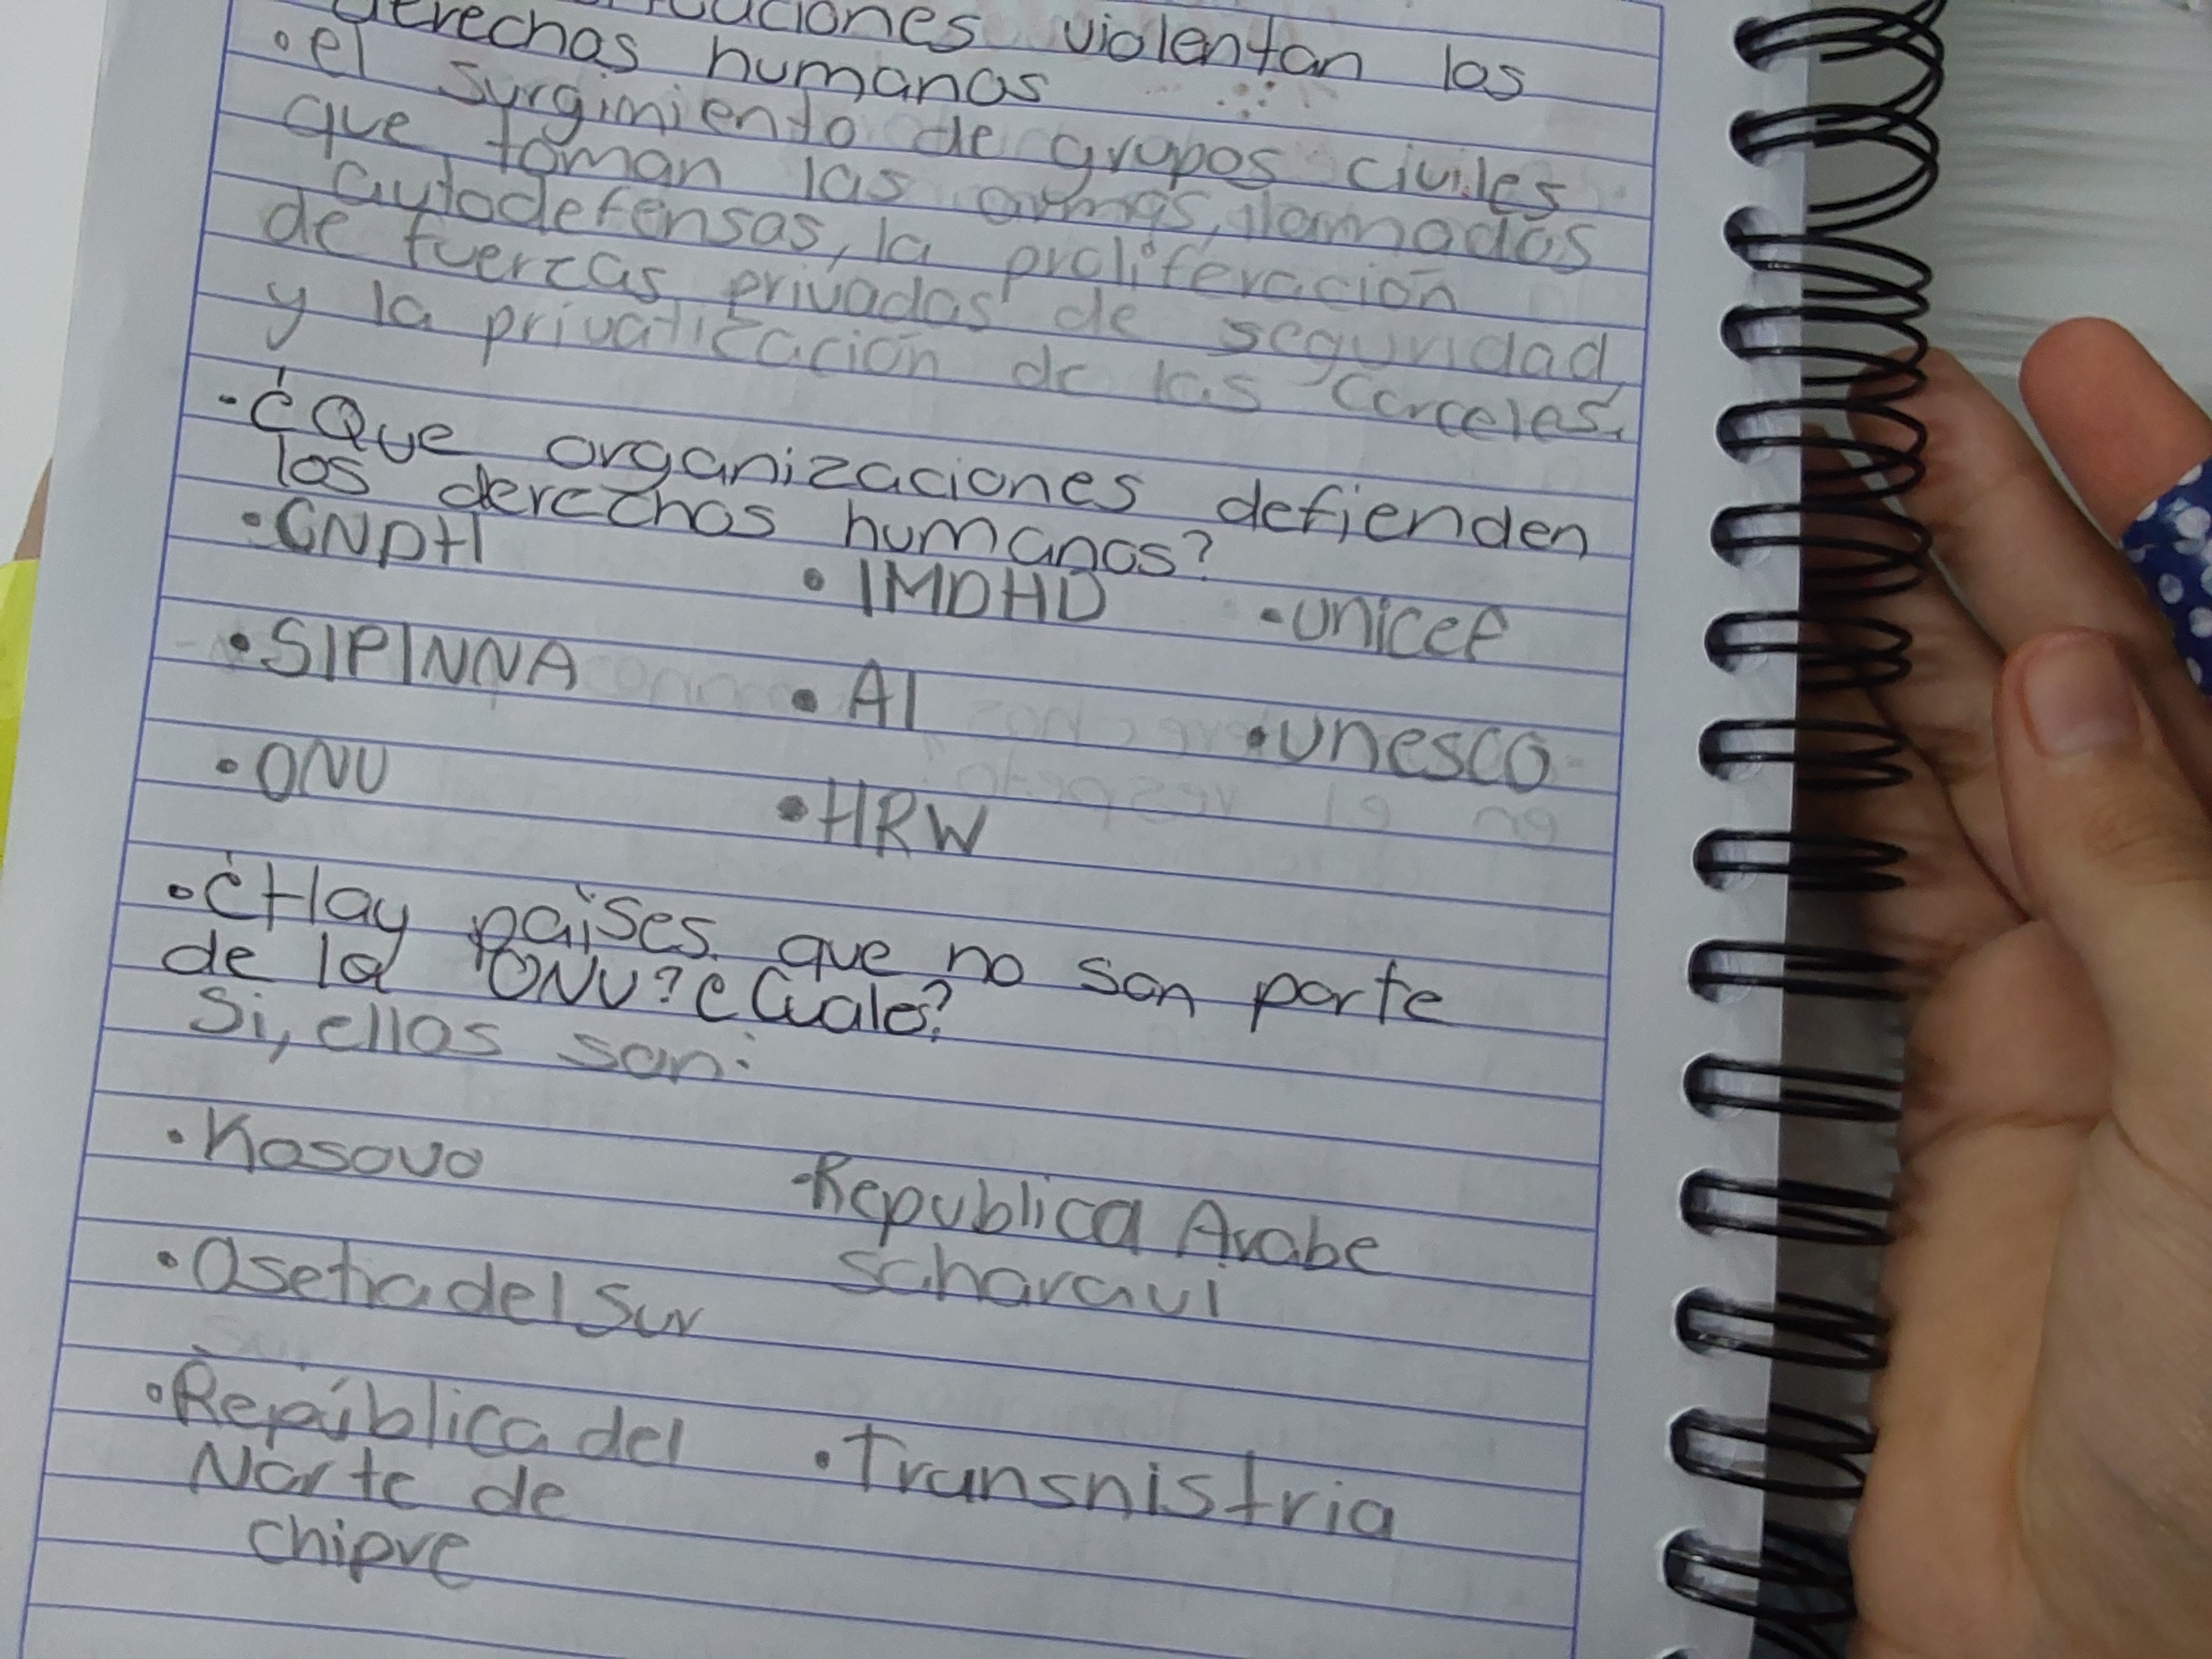 derechos humanos violentan los
• el surgimiento de grupos civiles
que toman las armas, llamados
autodefensas, la proliferación
de fuerzas privadas de seguridad,
y la privatización de las carceles.
- ¿Que organizaciones defienden
los derechos humanos?
• CNDH • IMDHD • unicef
• SIPINNA • AI • unesco
• ONU • HRW
• ¿Hay países que no son parte
de la ONU? ¿Cuales?
Si, ellos son:
• Kosovo - Republica Arabe
saharaui
• Osetia del Sur
• República del • Transnistria
Norte de
chipre